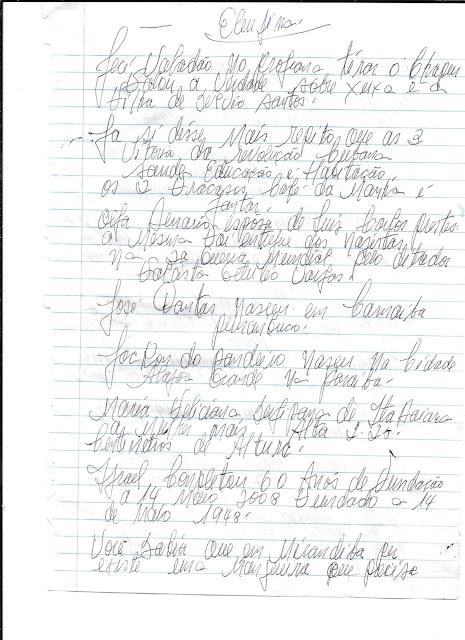 no o
falou a verdade sobre xuxa e a
filha de Sergio Santos.
Ja si disse Mais repito que as 3
Vitoria da revolução Cubana
Saude Educação e Habitação
os 2 Fracasos Café da Manhã e
Jantar.
Olga Benario esposa de Luis Carlos Prestes
a Mesma foi entregue aos Nasistas
Na 2a Guerra Mundial pelo ditador
Getulio Vargas!
José Dantas Naseu em Carnaiba
pernambuco.
Jackson do pandeiro Naseu Na Cidade
Alagoa Grande Na paraiba.
Maria Feliciana Sergipana de Itabaiana
a Mulher mais Alta 2.25.
Centimetros de Altura.
Israel Completou 60 Anos de Fundação
a 14 Maio 2008 Fundado a 14
de Maio 1948.
Você Sabia que em Mirandiba per
existe uma Mangueira que